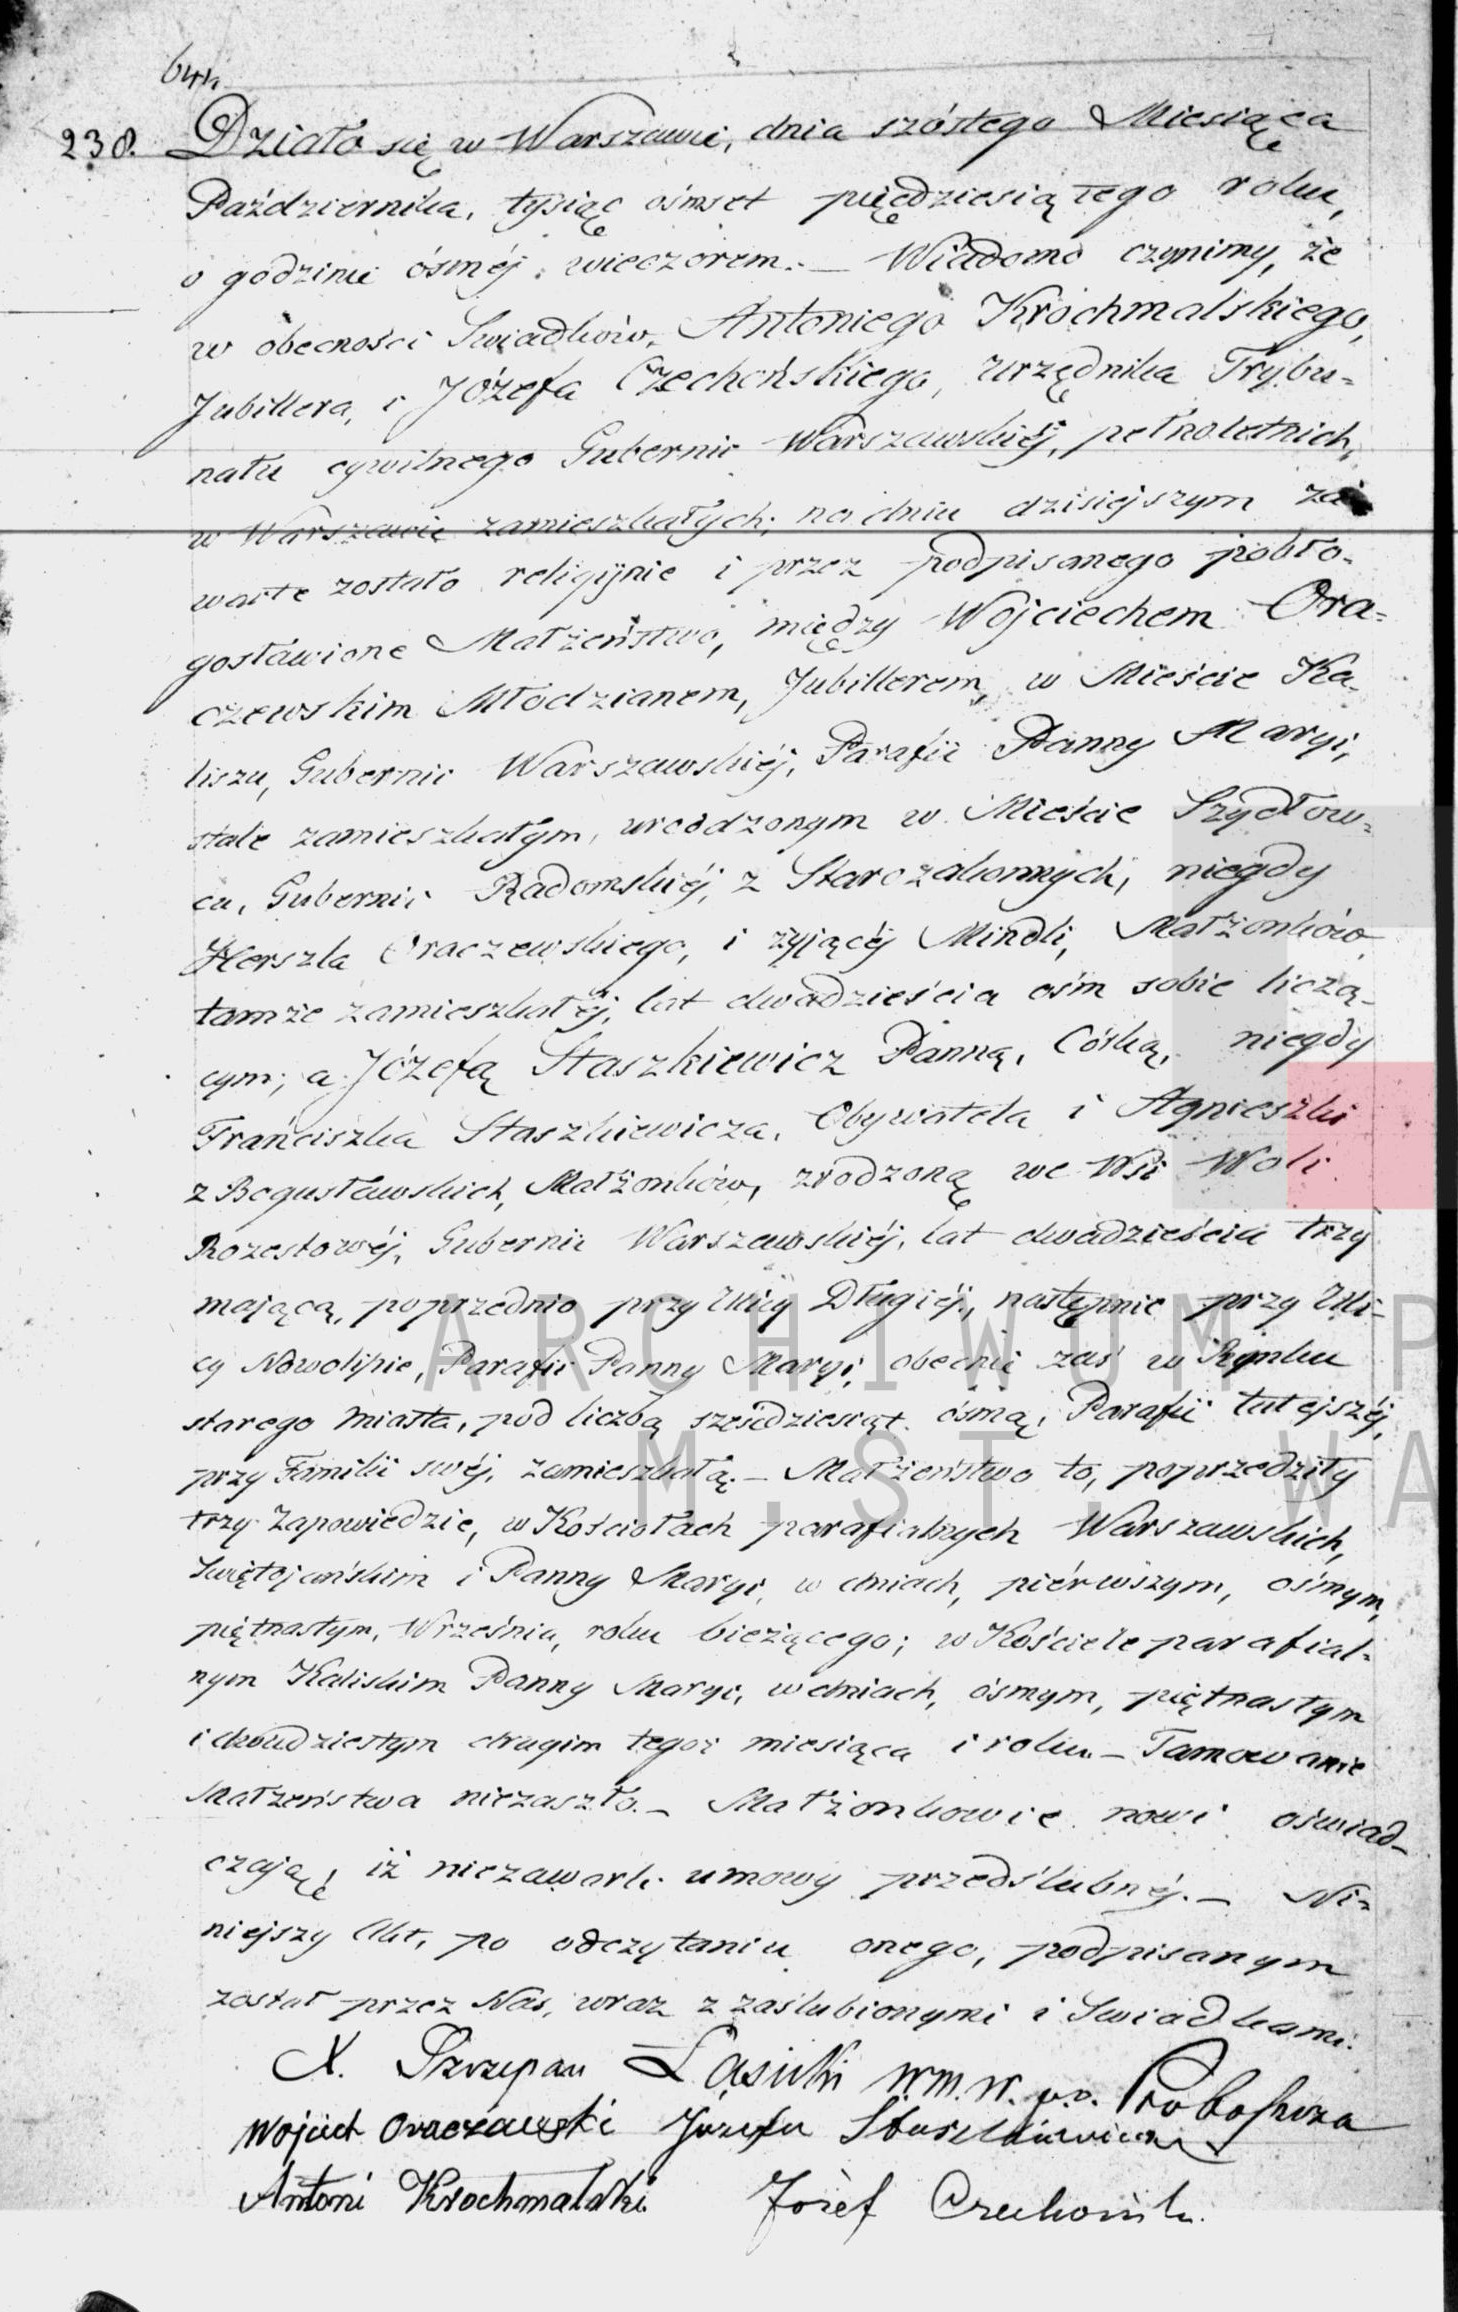 238. Działo się w Warszawie, dnia szóstego Miesiąca
Października, tysiąc ośmset pięćdziesiątego roku,
o godzinie ósméj wieczorem. — Wiadomo czynimy, że
w obecności Swiadków, Antoniego Krochmalskiego,
Jubillera, i Józefa Czechońskiego, urzędnika Trybu-
nału cywilnego Gubernii Warszawskiéj, pełnoletnich,
w Warszawie zamieszkałych; na dniu dzisiejszym za
warte zostało religijnie i przez podpisanego pobło-
gosławione Małżeństwo, między Wojciechem Ora-
czewskim Młodzianem, Jubillerem, w Mieście Ka-
liszu, Gubernii Warszawskiéj, Parafii Panny Maryi,
stale zamieszkałym, urodzonym w Mieście Szydłow-
cu, Gubernii Radomskiéj, z Starozakonnych, niegdy
Herszka Oraczewskiego, i żyjącéj Mindli, Małżonków,
tamże zamieszkałéj, lat dwadzieścia ośm sobie liczą-
cym; a Józefą Staszkiewicz Panną, Córką, niegdy
Franciszka Staszkiewicza, Obywatela i Agnieszki
z Bogusławskich, Małżonków, zrodzoną we Wsi Woli
Gubernii Warszawskiéj, lat dwadzieścia trzy
mającą, poprzednio przy Ulicy Długiéj, następnie przy Uli-
cy Nowolipie, Parafii Panny Maryi, obecnie zaś w Rynku
starego miasta, pod liczbą sześćdziesiąt ósmą, Parafii tutejszéj,
przy Familii swéj, zamieszkałą. — Małżeństwo to, poprzedziły
trzy Zapowiedzie, w Kościołach parafialnych Warszawskich,
Swiętojańskim i Panny Maryi, w dniach, piérwszym, ósmym,
piętnastym, Września, roku bieżącego; w Kościele parafial-
nym Kaliskim Panny Maryi, w dniach, ósmym, piętnastym
i dwudziestym drugim tegoż miesiąca i roku — Tamowanie
Małżeństwa niezaszło. — Małżonkowie nowi oświad-
czają, iż niezawarli umowy przedślubnéj. — Ni-
niejszy Akt, po odczytaniu onego, podpisanym
został przez Nas, wraz z zaślubionymi i Swiadkami.
X. Szczepan Łasicki W.M.N. p.o. Proboszcza
Wojciech Oraczewski Józefa Staszkiewicz
Antoni Krochmalski Józef Czechoński
ARCHIWUM P
M. ST. WA